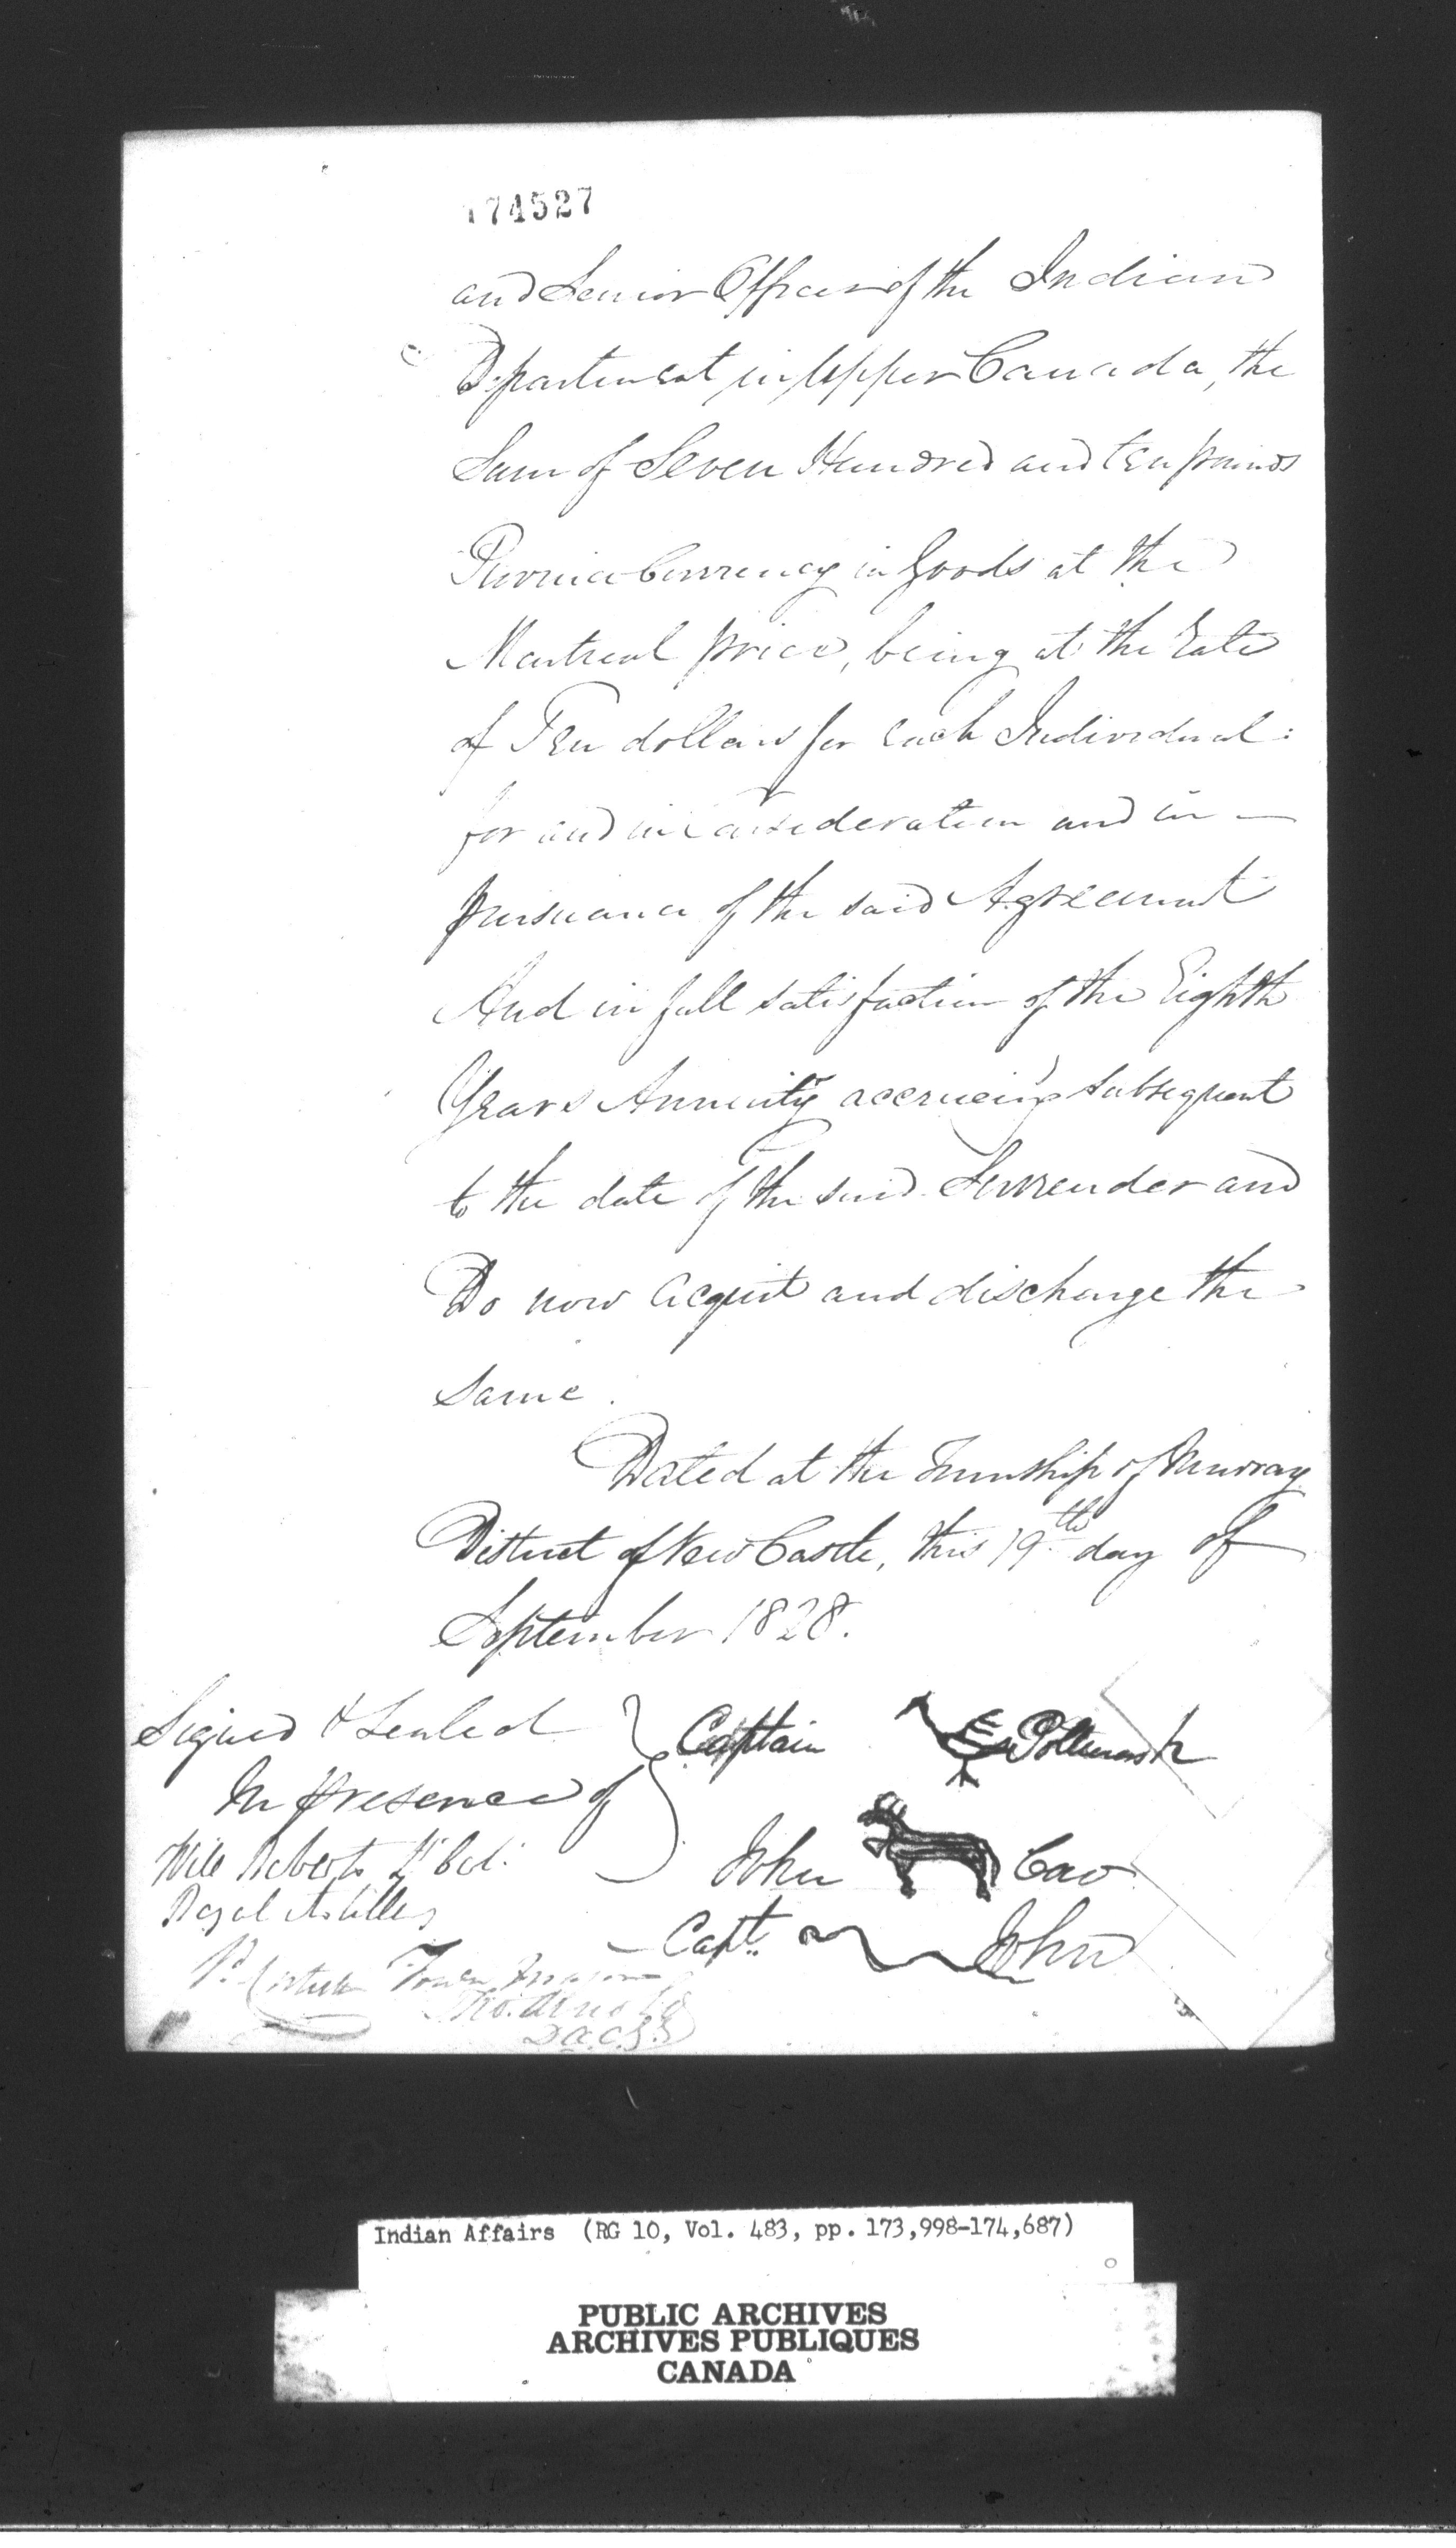 174527
and Senior Officer of the Indian
Department in Upper Canada, the
Sum of Seven Hundred and ten pounds
Province Currency in Goods at the
Montreal price, being at the rate
of Ten dollars for each Individual:
for and in consideration and in —
pursuance of the said Agreement
And in full satisfaction of the Eighth
Years Annuity accrueing subsequent
to the date of the said Surrender and
Do now acquit and discharge the
same.
Dated at the Township of Murray
District of New Castle, this 19th day of
September 1828.
Signed & Sealed
In presence of
Will Roberts Lt Col:
Royal Artillery
Town Major
D.A.C.G.
Captain
John Cao
Capt. John
Indian Affairs (RG 10, Vol. 483, pp. 173,998-174,687)
PUBLIC ARCHIVES
ARCHIVES PUBLIQUES
CANADA